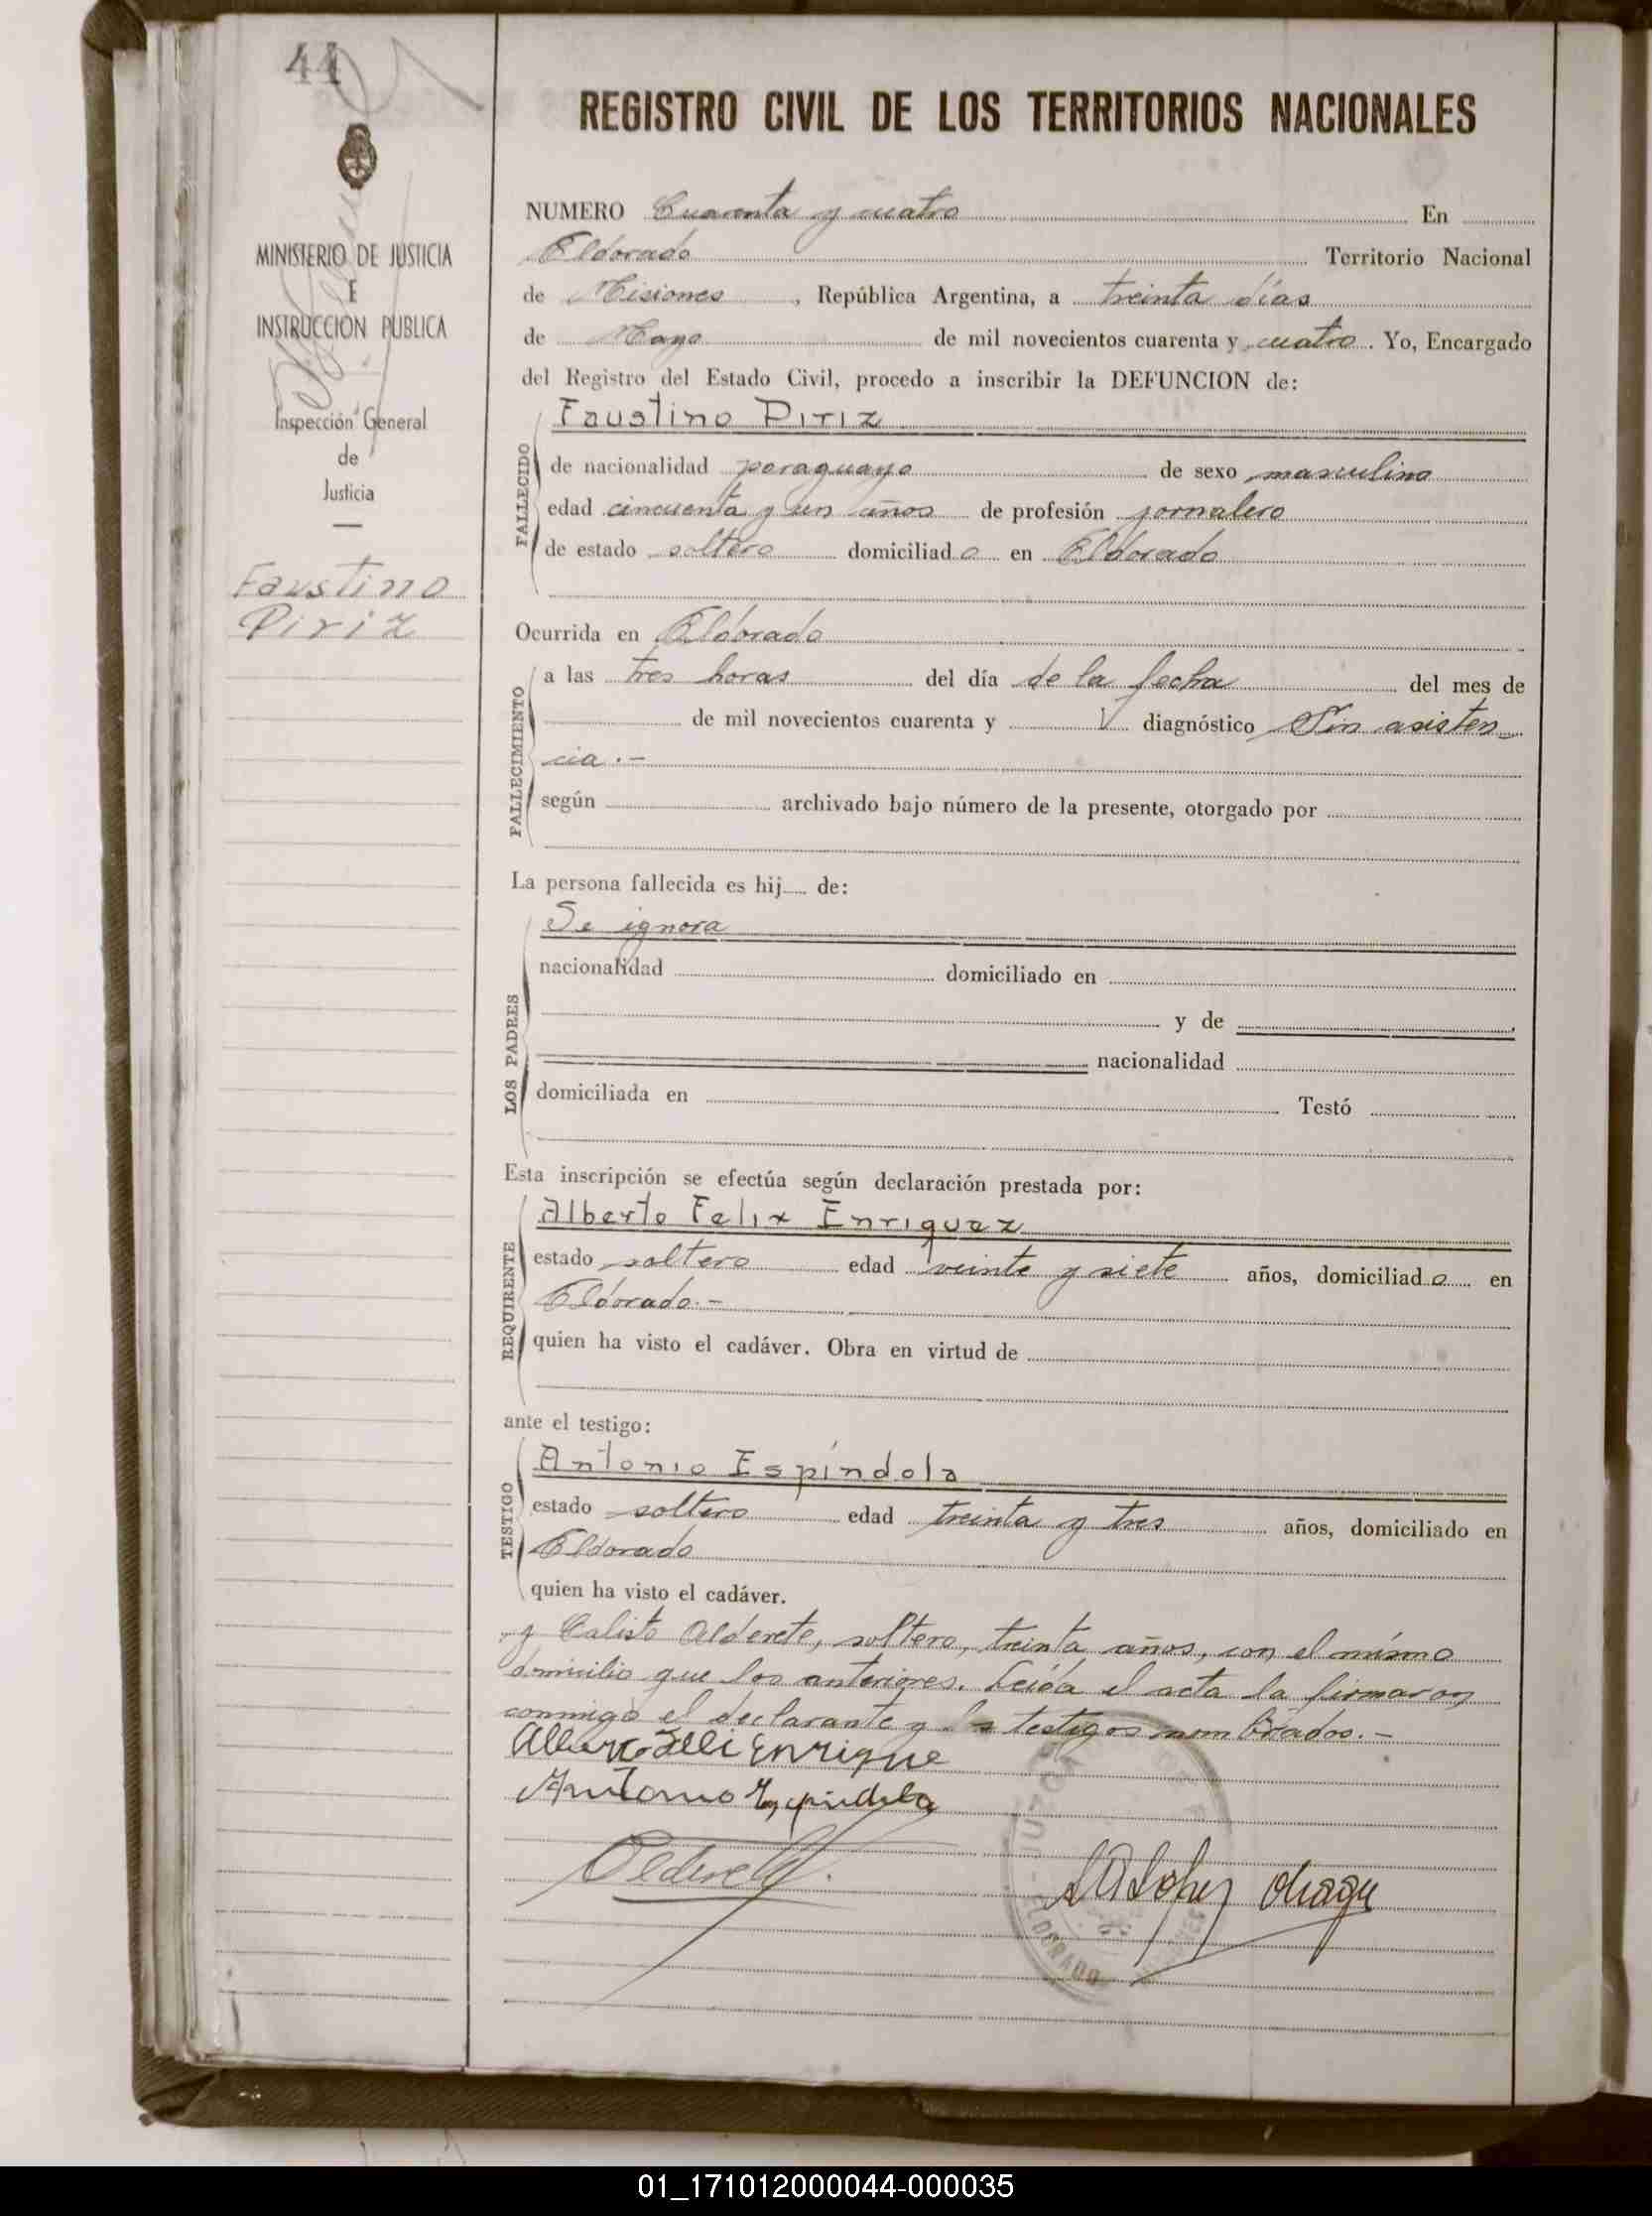 44
REGISTRO CIVIL DE LOS TERRITORIOS NACIONALES
MINISTERIO DE JUSTICIA
E
INSTRUCCION PUBLICA
Inspección General
de
Justicia
Faustino
Piriz
NUMERO Cuarenta y cuatro En
Eldorado Territorio Nacional
de Misiones, República Argentina, a treinta días
de Mayo de mil novecientos cuarenta y cuatro. Yo, Encargado
del Registro del Estado Civil, procedo a inscribir la DEFUNCION de:
Faustino Piriz
FALLECIDO
de nacionalidad paraguayo de sexo masculino
edad cincuenta y un años de profesión jornalero
de estado soltero domiciliado en Eldorado
Ocurrida en Eldorado
FALLECIMIENTO
a las tres horas del día de la fecha del mes de
de mil novecientos cuarenta y diagnóstico Sin asisten
cia.-
según archivado bajo número de la presente, otorgado por
La persona fallecida es hij de:
LOS PADRES
Se ignora
nacionalidad domiciliado en
y de
nacionalidad
domiciliada en Testó
Esta inscripción se efectúa según declaración prestada por:
REQUIRENTE
Alberto Felix Enriquez
estado soltero edad veinte y siete años, domiciliado en
Eldorado.-
quien ha visto el cadáver. Obra en virtud de
ante el testigo:
TESTIGO
Antonio Espíndola
estado soltero edad treinta y tres años, domiciliado en
Eldorado
quien ha visto el cadáver.
y Calisto Alderete, soltero, treinta años, con el mismo
domicilio que los anteriores. Leída el acta la firmaron
conmigo el declarante y los testigos nombrados.-
Enrique
Antonio Espindola
ELDORADO
01_171012000044-000035